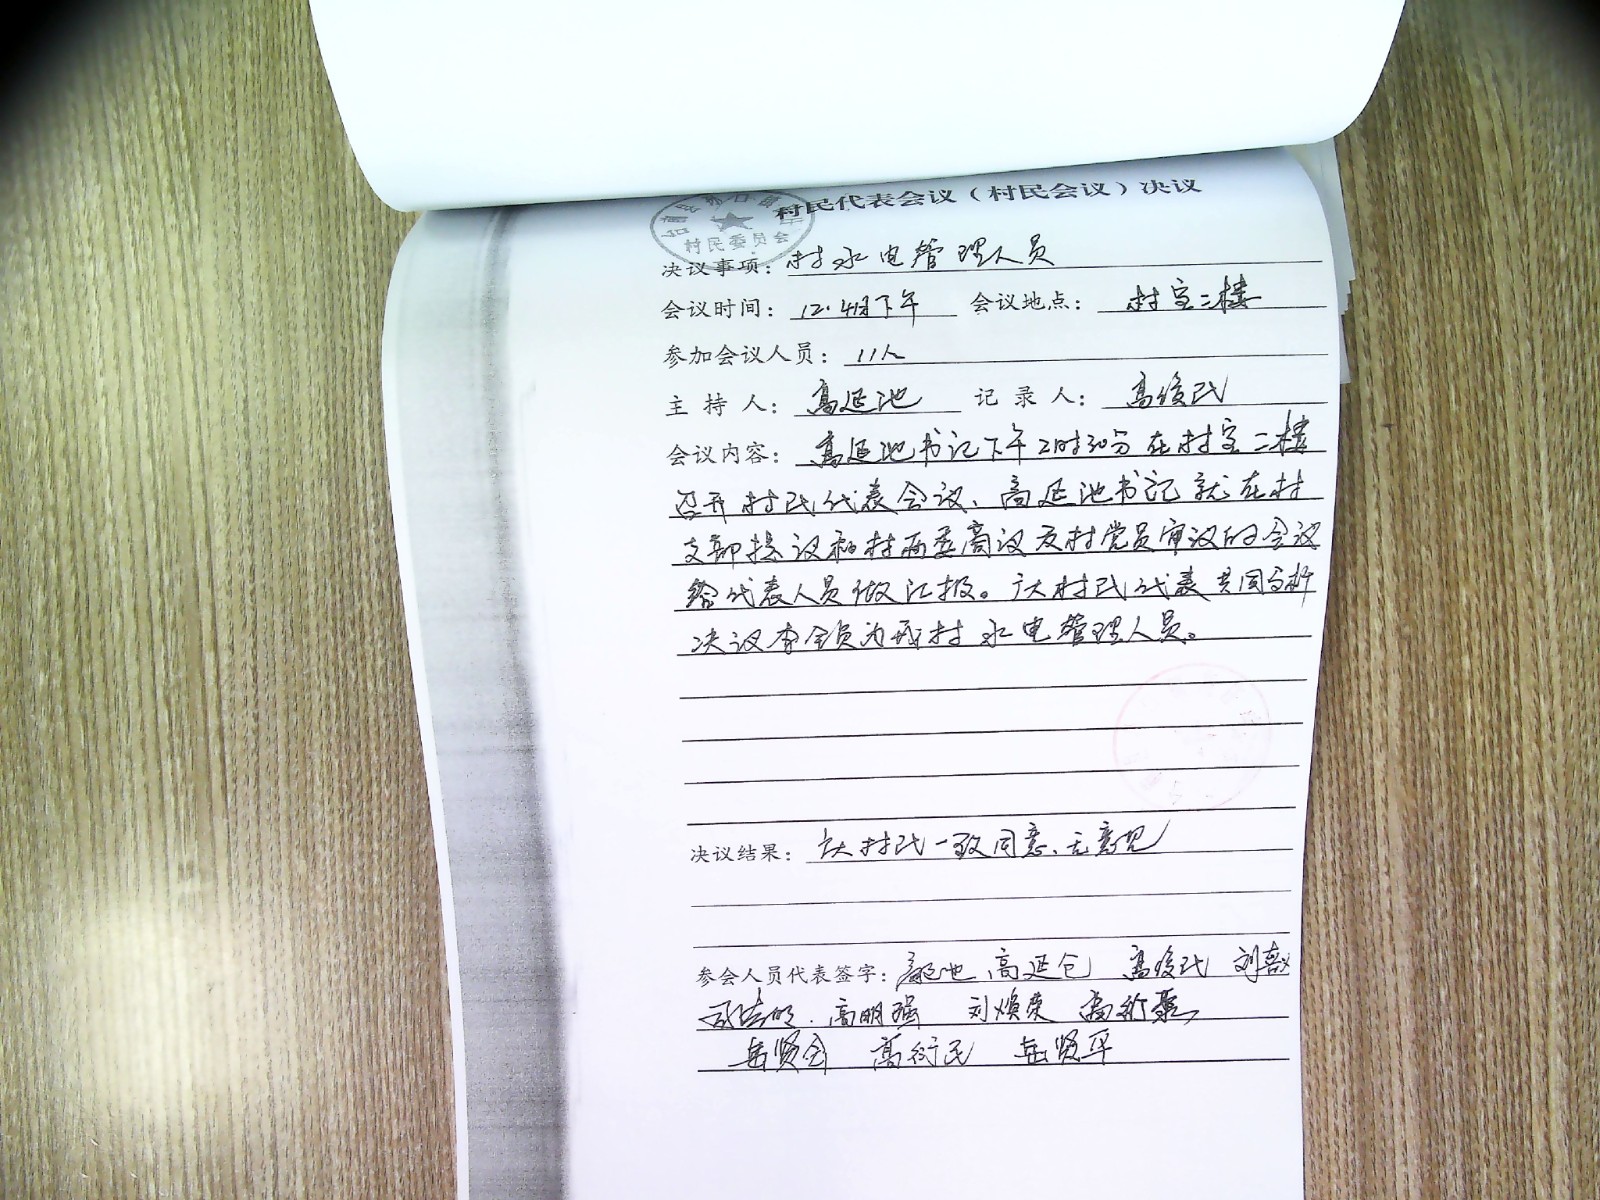 村民代表会议（村民会议）决议
村民委员会
决议事项：村水电管理人员
会议时间：12.4日下午 会议地点：村室二楼
参加会议人员：11人
主持人：高延池 记录人：高俊民
会议内容：高延池书记下午2时30分在村室二楼
召开村民代表会议、高延池书记就在村
支部提议和村两委商议及村党员审议的会议
给代表人员做汇报。广大村民代表共同分析
决议李全员为我村水电管理人员。
决议结果：广大村民一致同意、无意见
参会人员代表签字：高延池 高延仓 高俊民
高明强 刘焕荣
岳贤会 高衍民 岳贤平